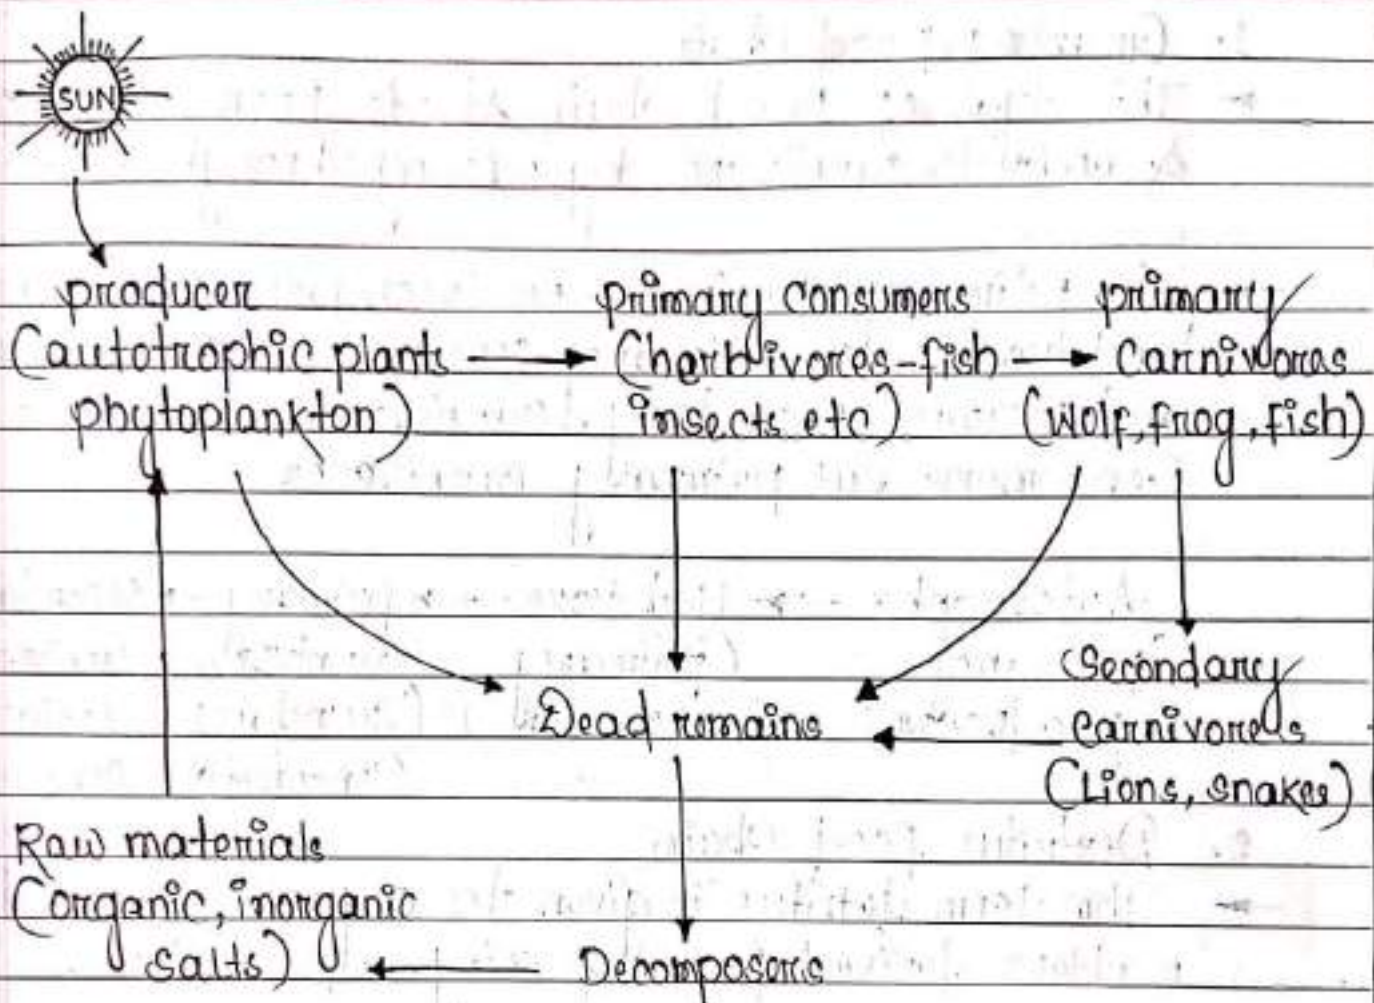 SUN
producer
(autotrophic plants
phytoplankton)
primary consumers
(herbivores-fish
insects etc)
primary
carnivores
(wolf, frog, fish)
Secondary
carnivores
(Lions, snakes)
Dead remains
Raw materials
(organic, inorganic
salts)
Decomposers